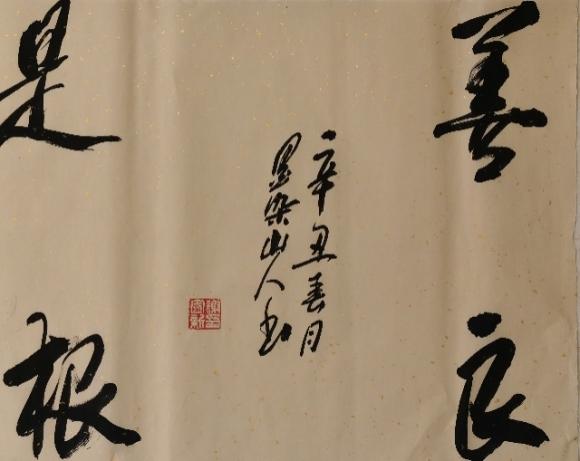 善良
辛丑春月
墨染山人书
是根